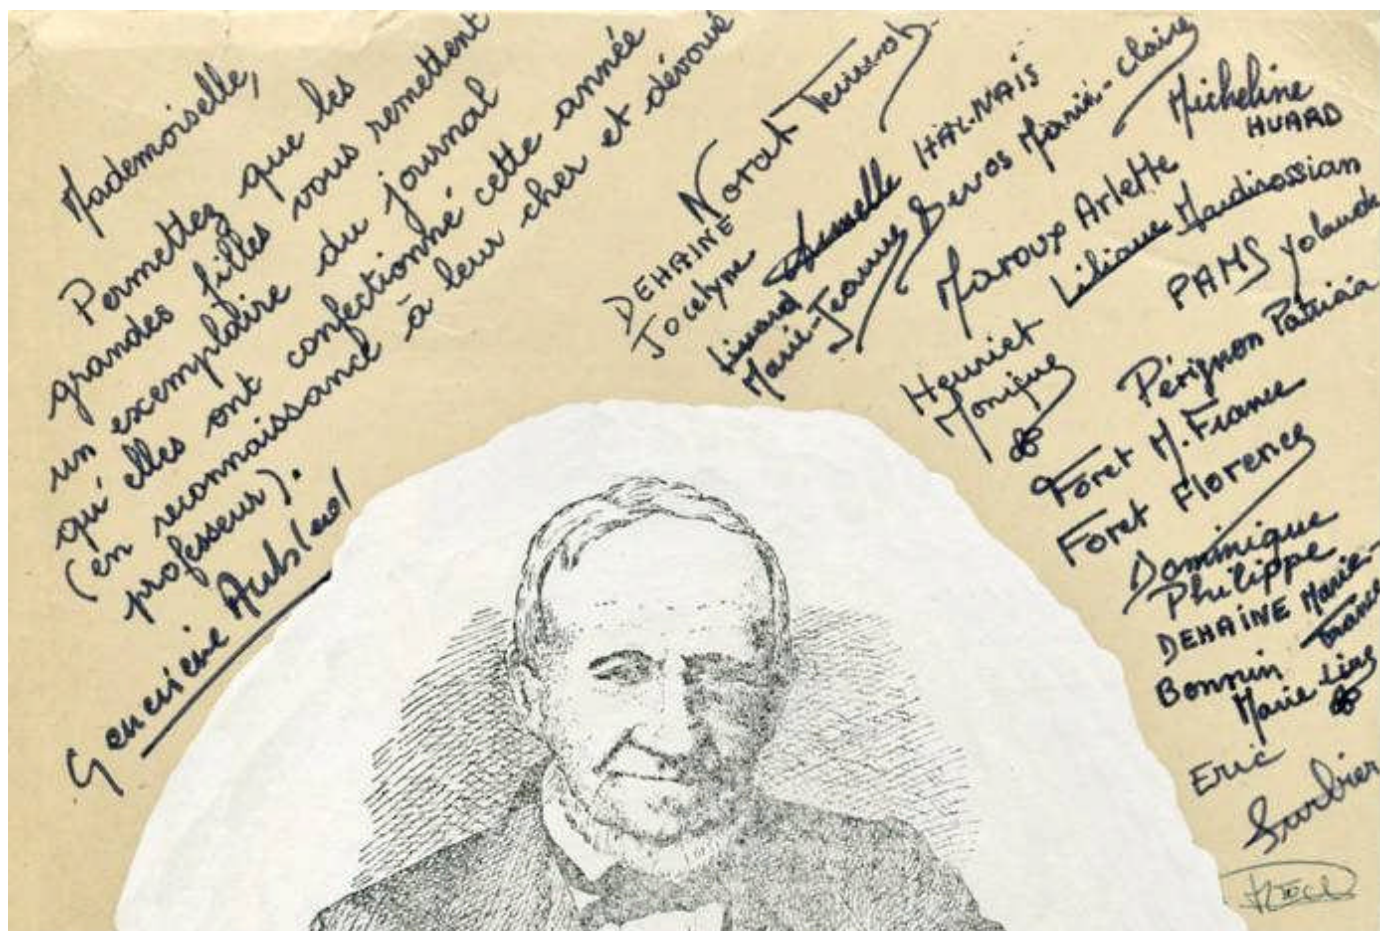 Mademoiselle,
Permettez que les
grandes filles vous remettent
un exemplaire du journal
qu'elles ont confectionné cette année
(en reconnaissance à leur cher et dévoué
professeur).
Geneviève
Norat
DEHAINE
Jocelyne
Armelle HAL-NAIS
Marie-Jeanne
Servos Marie-Claire
Micheline
HUARD
Maroux Arlette
Liliane Mardirossian
PAMS Yolande
Henriet
Monique
Pérignon Patricia
Foret M. France
Foret Florence
Dominique
Philippe
DEHAINE Marie-
France
Bonnin
Marie-Line
Eric
Surbier